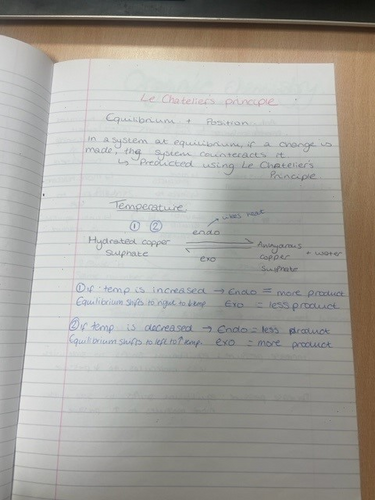 Le Chatelier's principle
Equilibrium + Position
In a system at equilibrium, if a change is
made, the system counteracts it.
↳ Predicted using Le Chatelier's
Principle
Temperature
uses heat
① ②
endo
Hydrated copper
Sulphate
⇌
Anhydrous
copper
sulphate
+ water
exo
① if temp is increased → Endo = more product
Equilibrium shifts to right to ↓ temp. Exo = less product
② if temp is decreased → Endo = less product
Equilibrium shifts to left to ↑ temp. exo = more product